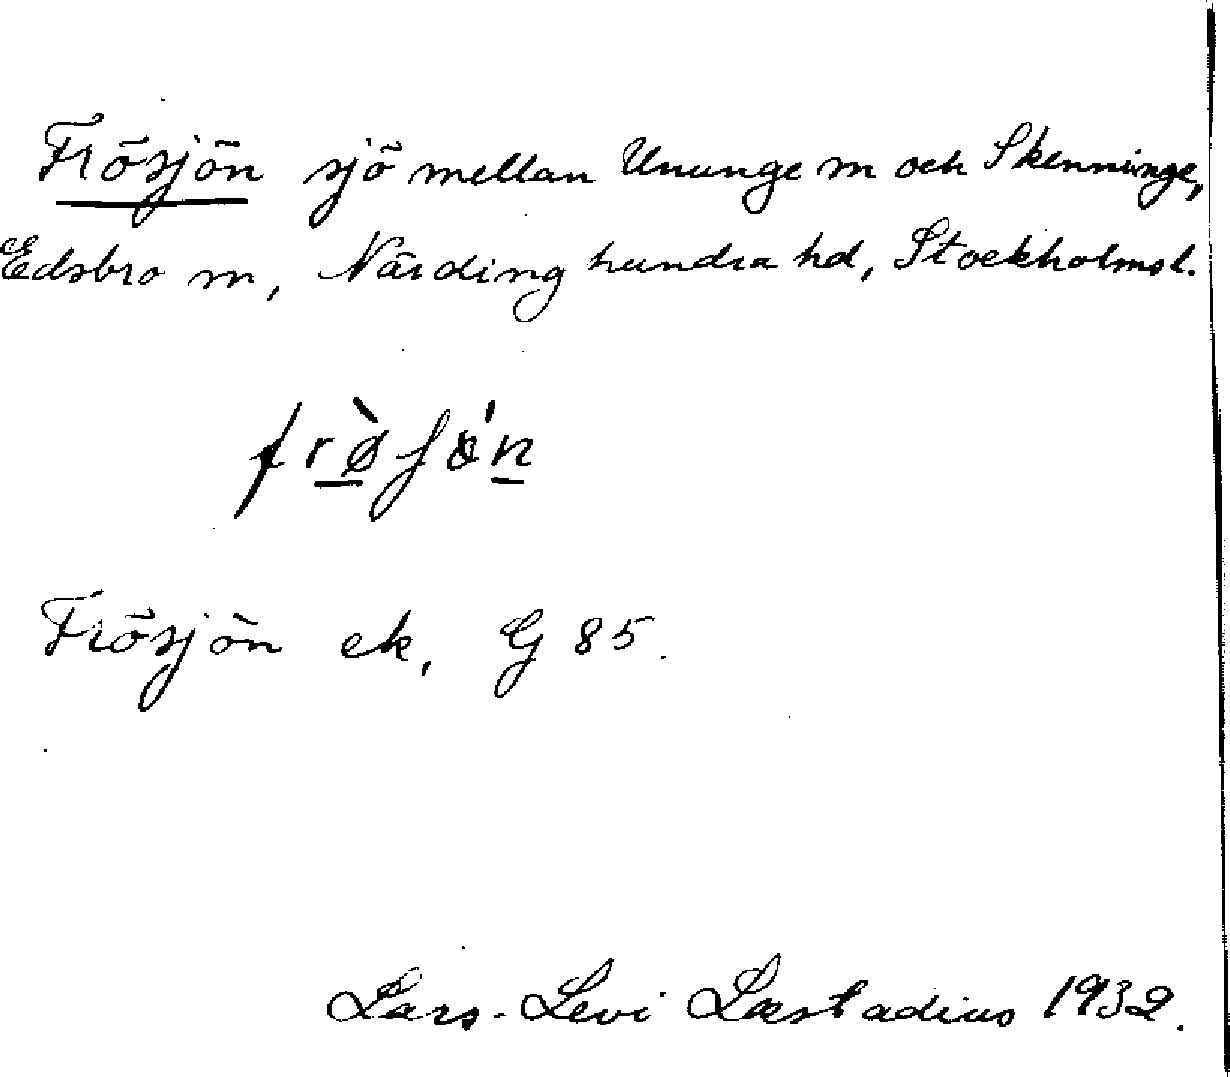 Frösjön sjö mellan Ununge sn och Skenninge,
Edsbro sn, Närdinghundra hd, Stockholms l.
Frösjön ek, G 85.
Lars-Levi Læstadius 1932.